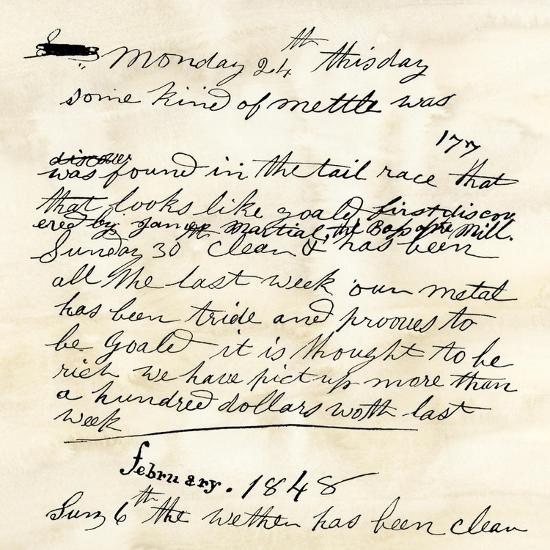 Monday 24th this day
some kind of mettle was
177
discover
was found in the tail race that
that looks like goald first discov
ered by James Martial, the Boss of the Mill.
Sunday 30th clean & has been
all the last week our metal
has been tride and prooves to
be goald it is thought to be
rich we have pict up more than
a hundred dollars woth last
week
february. 1848
Sun 6th the wether has been clean